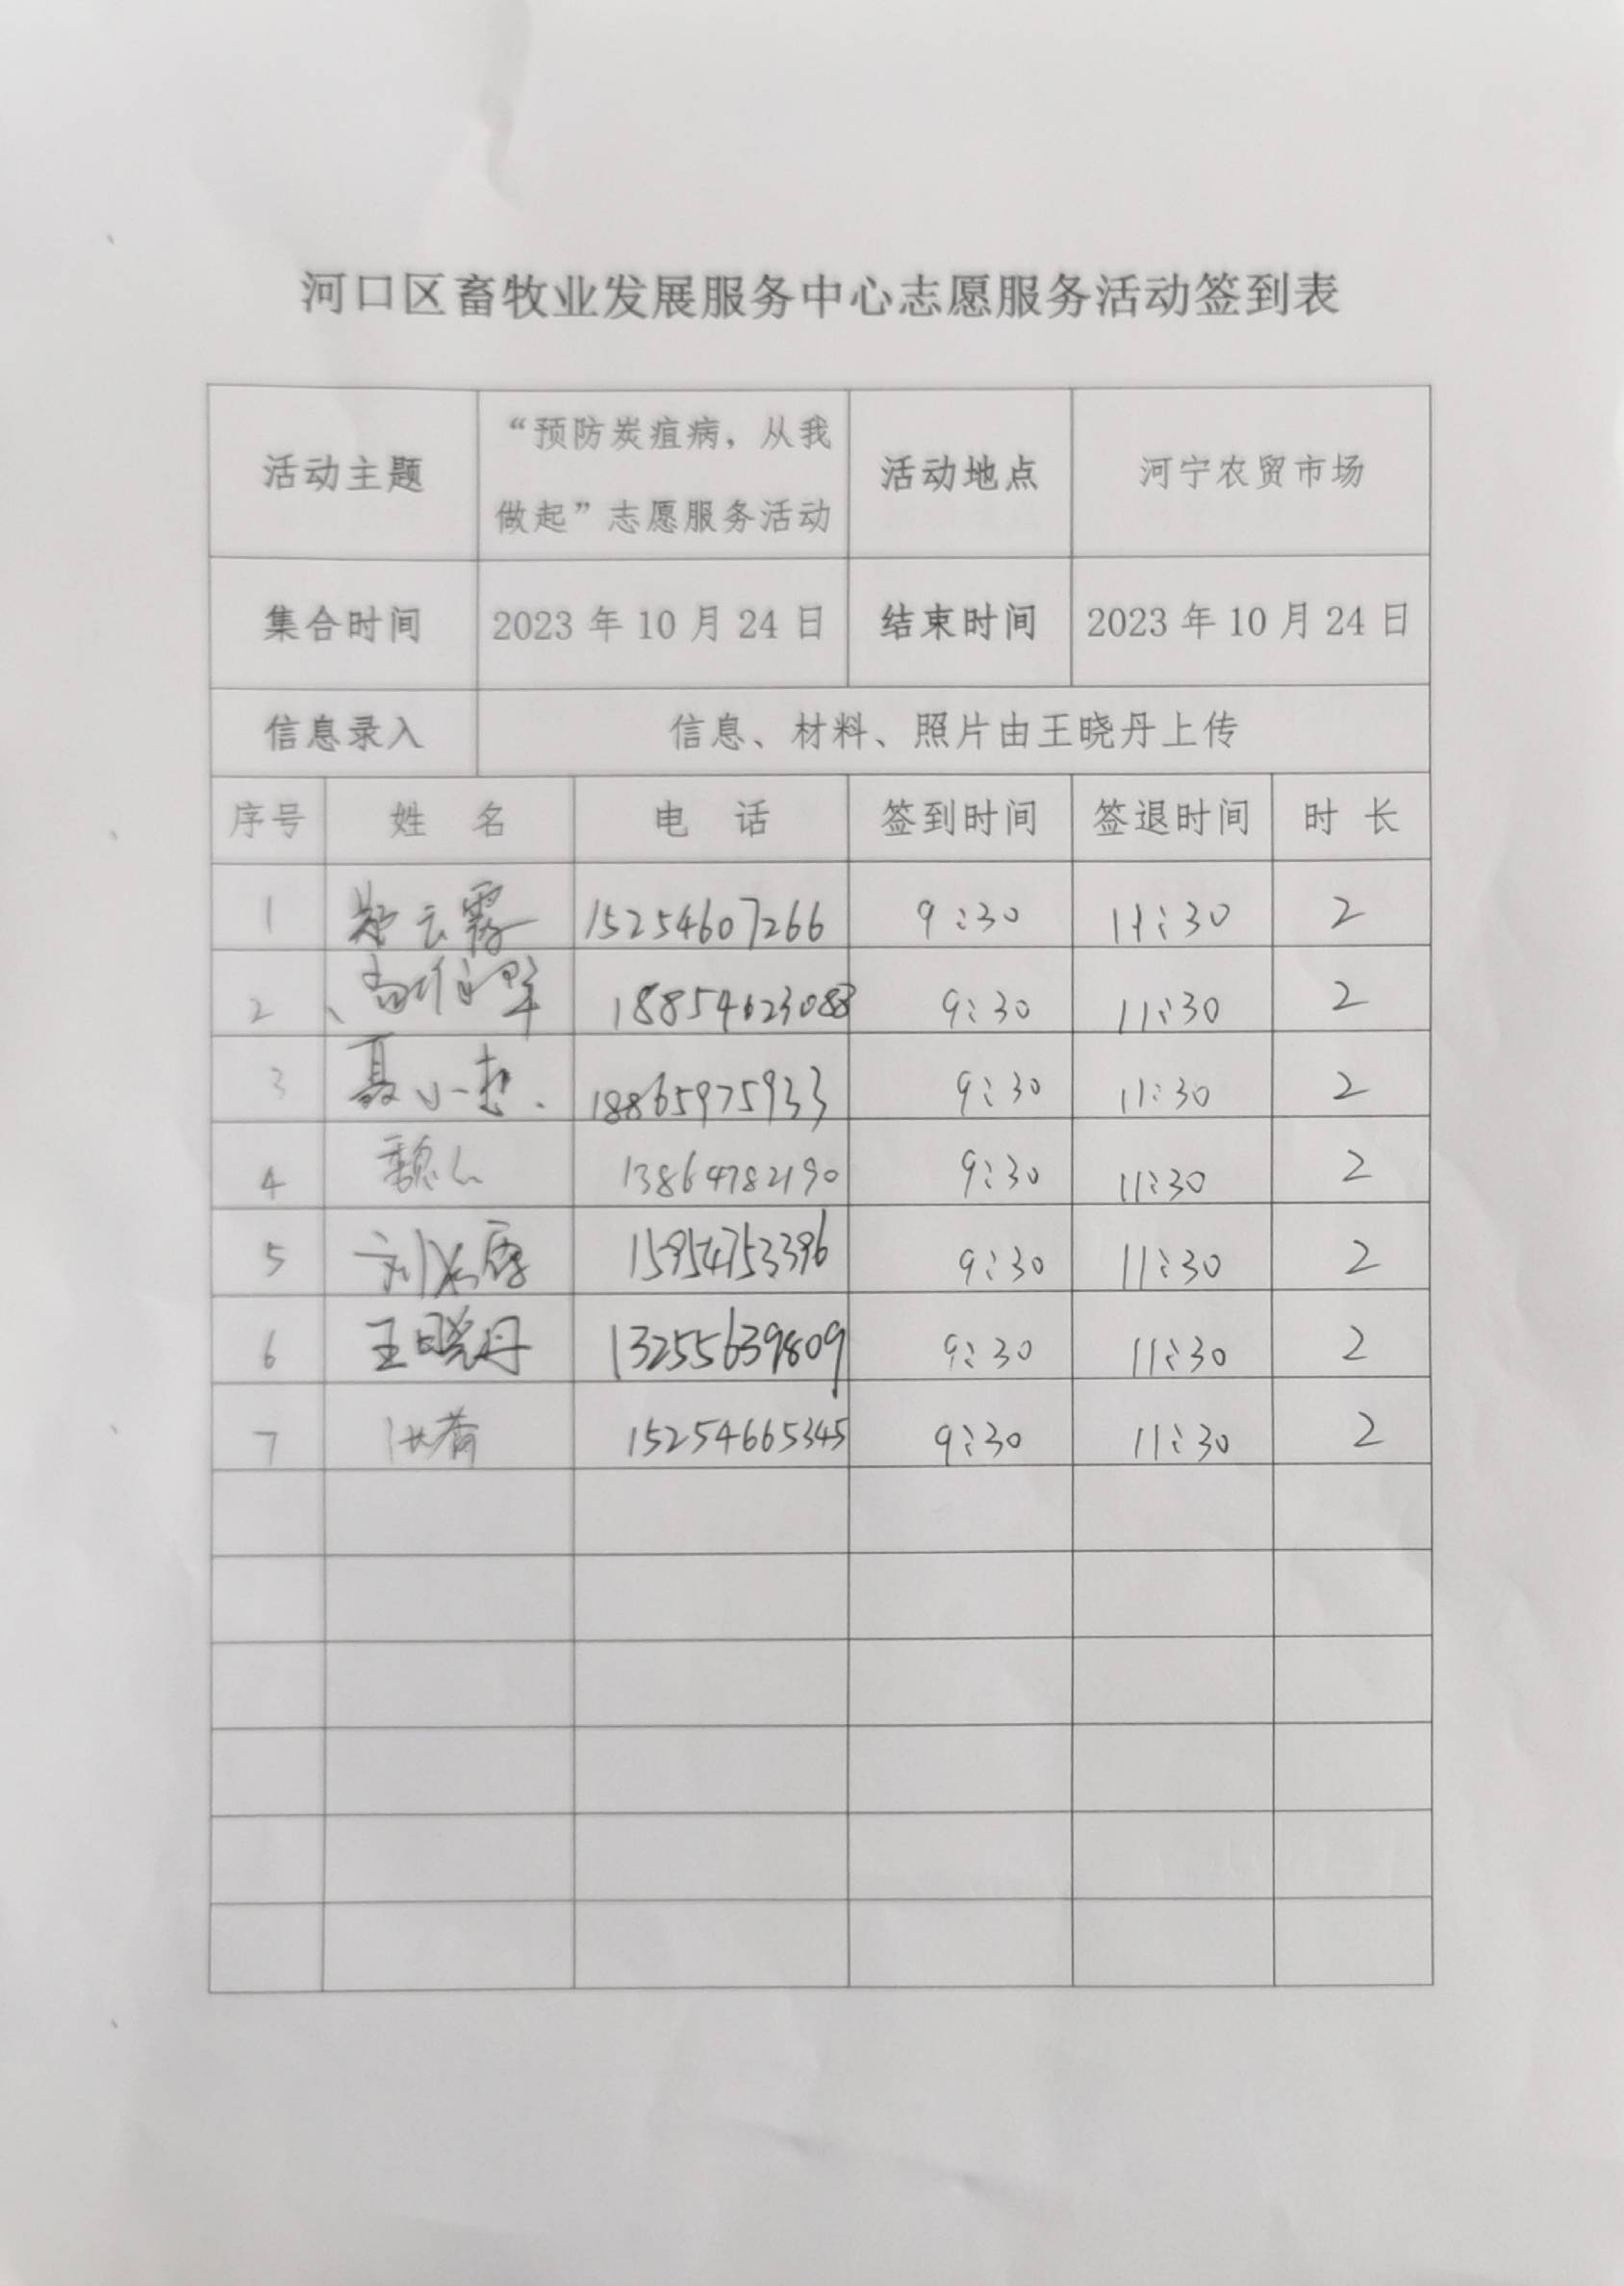 河口区畜牧业发展服务中心志愿服务活动签到表
活动主题 “预防炭疽病，从我做起”志愿服务活动 活动地点 河宁农贸市场
集合时间 2023 年 10 月 24 日 结束时间 2023 年 10 月 24 日
信息录入 信息、材料、照片由王晓丹上传
序号 姓 名 电 话 签到时间 签退时间 时 长
1 15254607266 9:30 11:30 2
2 9:30 11:30 2
3 18865975933 9:30 11:30 2
4 13864782190 9:30 11:30 2
5 15954753396 9:30 11:30 2
6 王晓丹 13255639809 9:30 11:30 2
7 15254665345 9:30 11:30 2